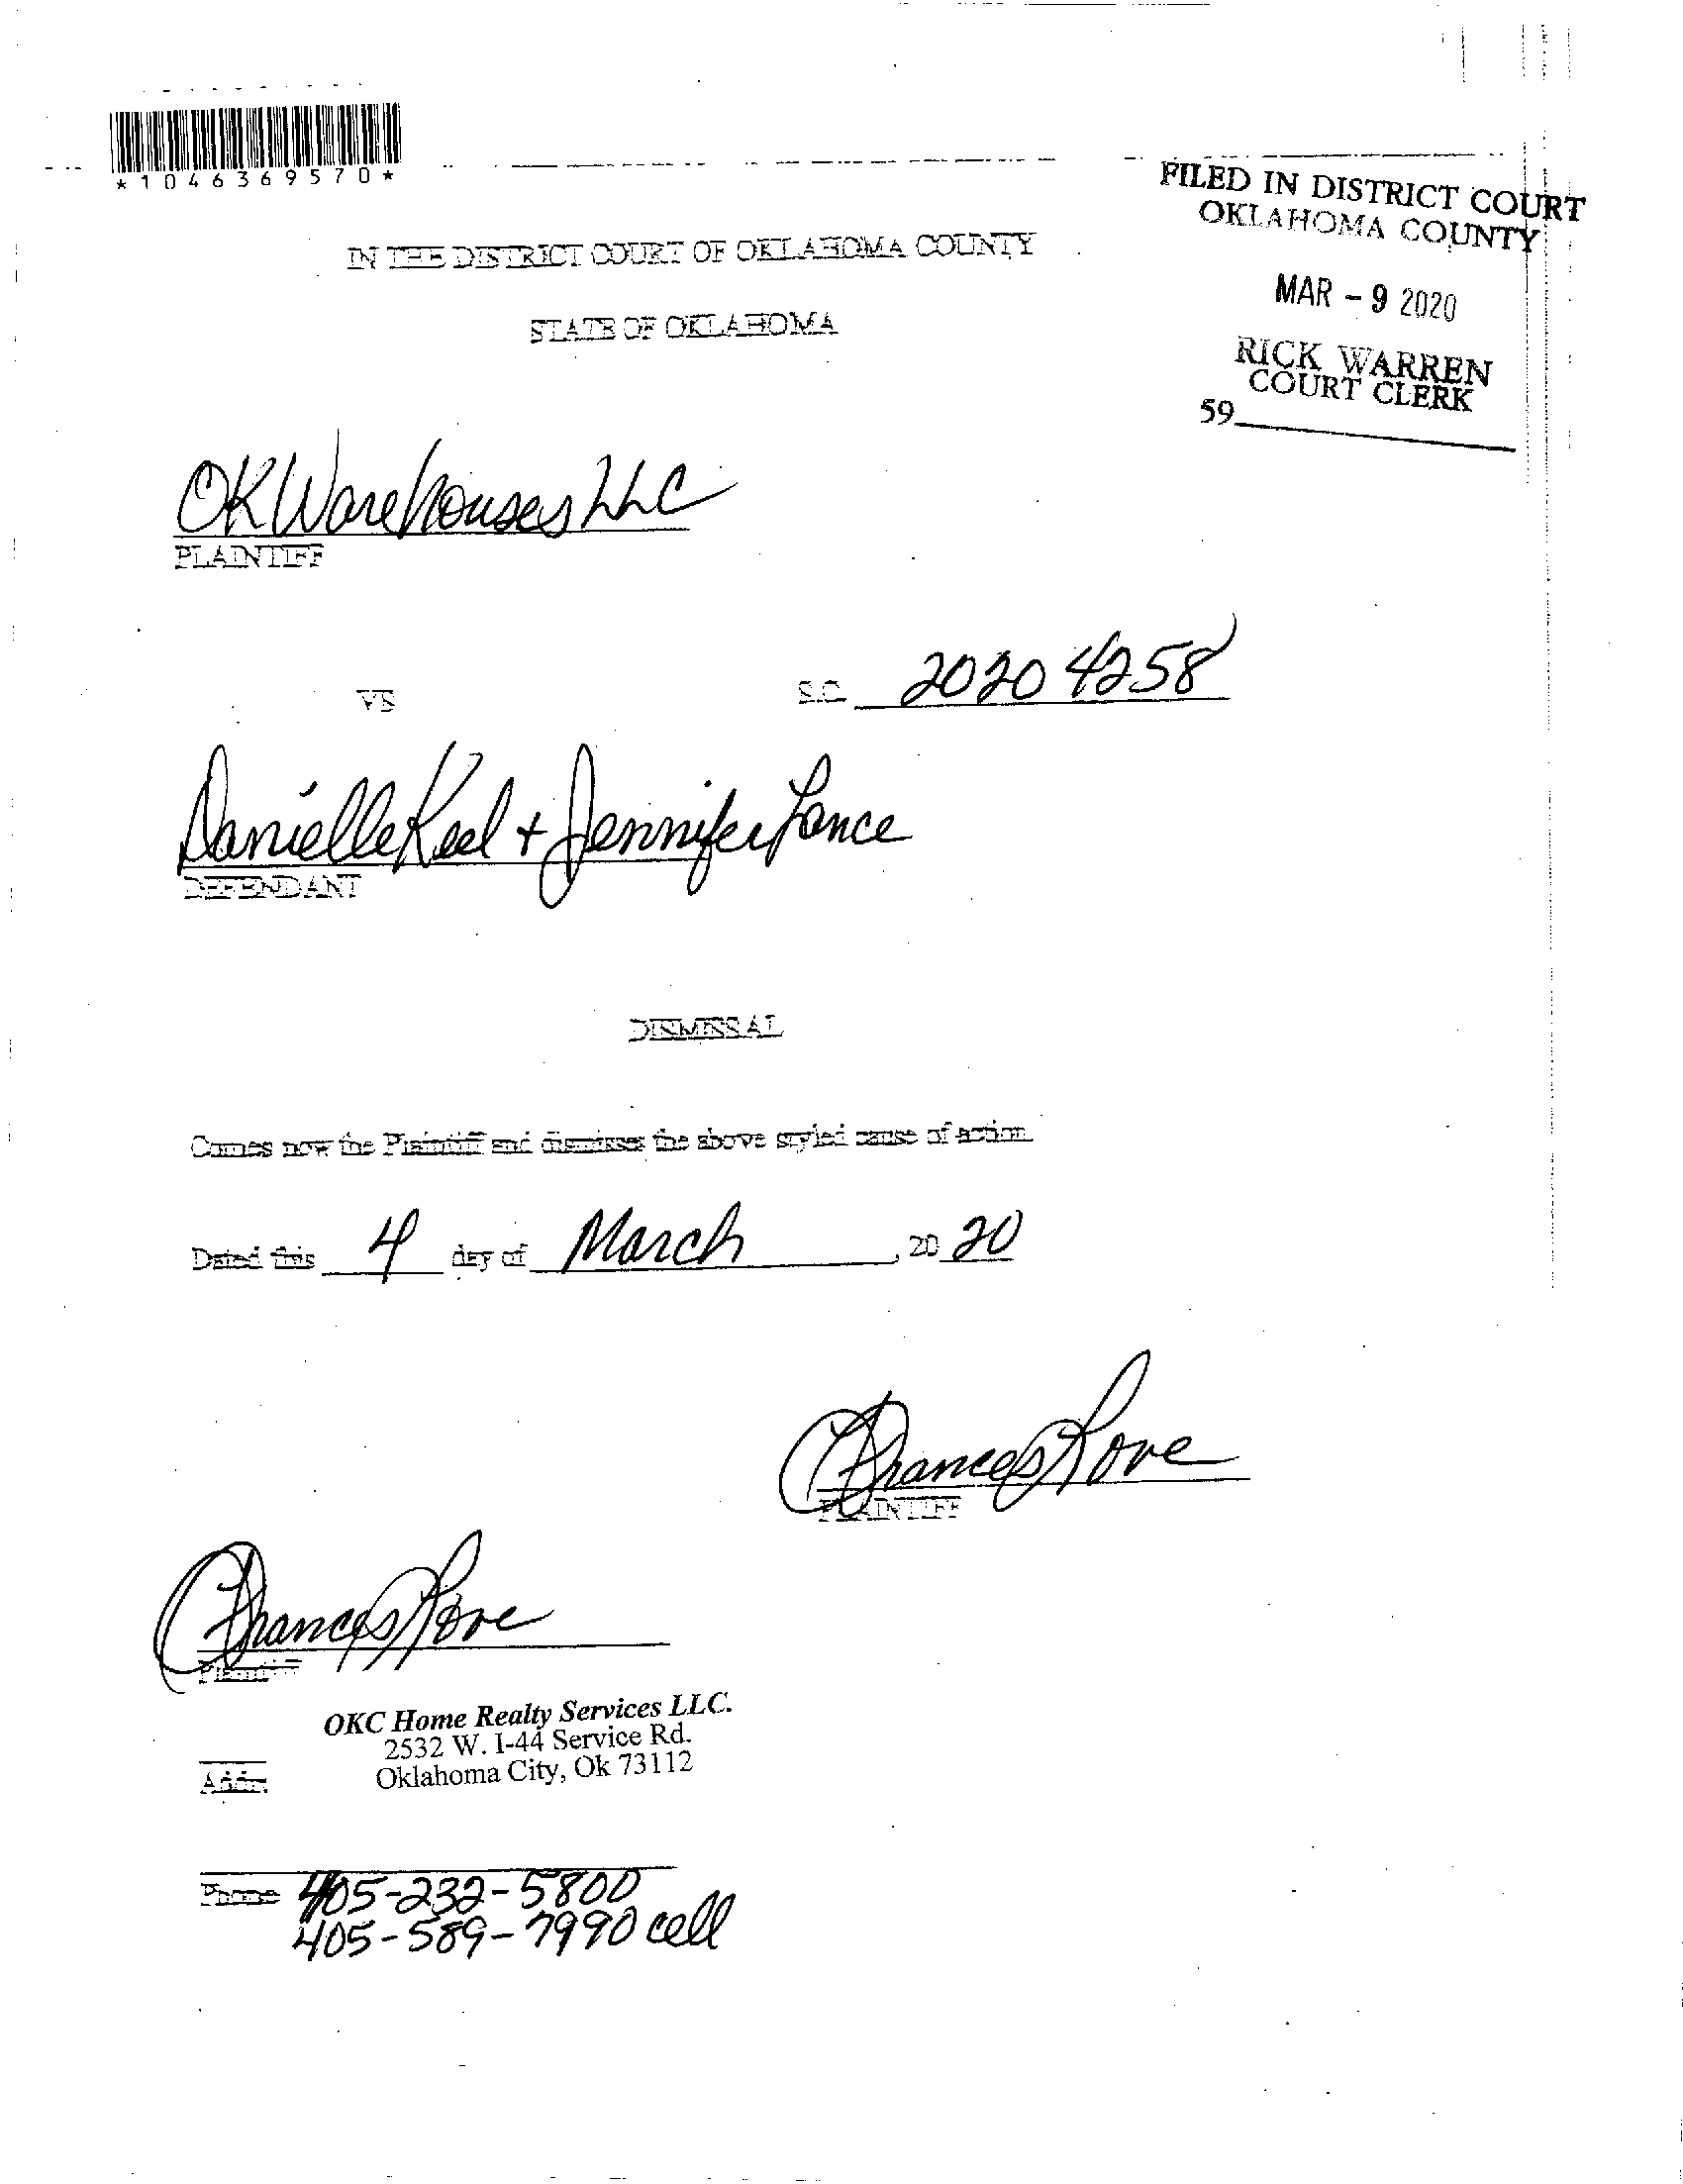 *1046369570*
FILED IN DISTRICT COURT
OKLAHOMA COUNTY
MAR - 9 2020
RICK WARREN
COURT CLERK
59
IN THE DISTRICT COURT OF OKLAHOMA COUNTY
STATE OF OKLAHOMA
OK Warehouses LLC
PLAINTIFF
VS
S.C. 2020 4258
Danielle Keel + Jennifer Lance
DEFENDANT
DISMISSAL
Comes now the Plaintiff and dismisses the above styled cause of action.
Dated this 4 day of March, 20 20
Frances Love
PLAINTIFF
Frances Love
Plaintiff
OKC Home Realty Services LLC.
2532 W. I-44 Service Rd.
Addr. Oklahoma City, Ok 73112
Phone 405-232-5800
405-589-7990 cell